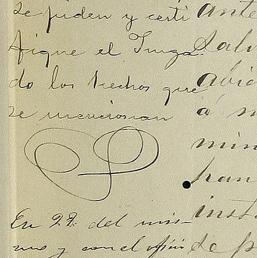 se piden y certi
fique el Juzga
do los hechos que
se mencionan
En 29. del mis-
mo y con el ofici
ante
Salv
abie
á m
min
han
inst
de p